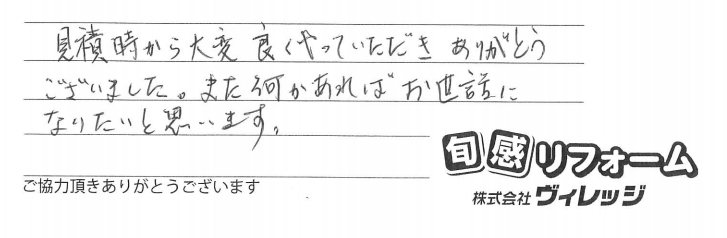 見積時から大変良くやっていただきありがとう
ございました。また何かあればお世話に
なりたいと思います。
旬感リフォーム
株式会社ヴィレッジ
ご協力頂きありがとうございます